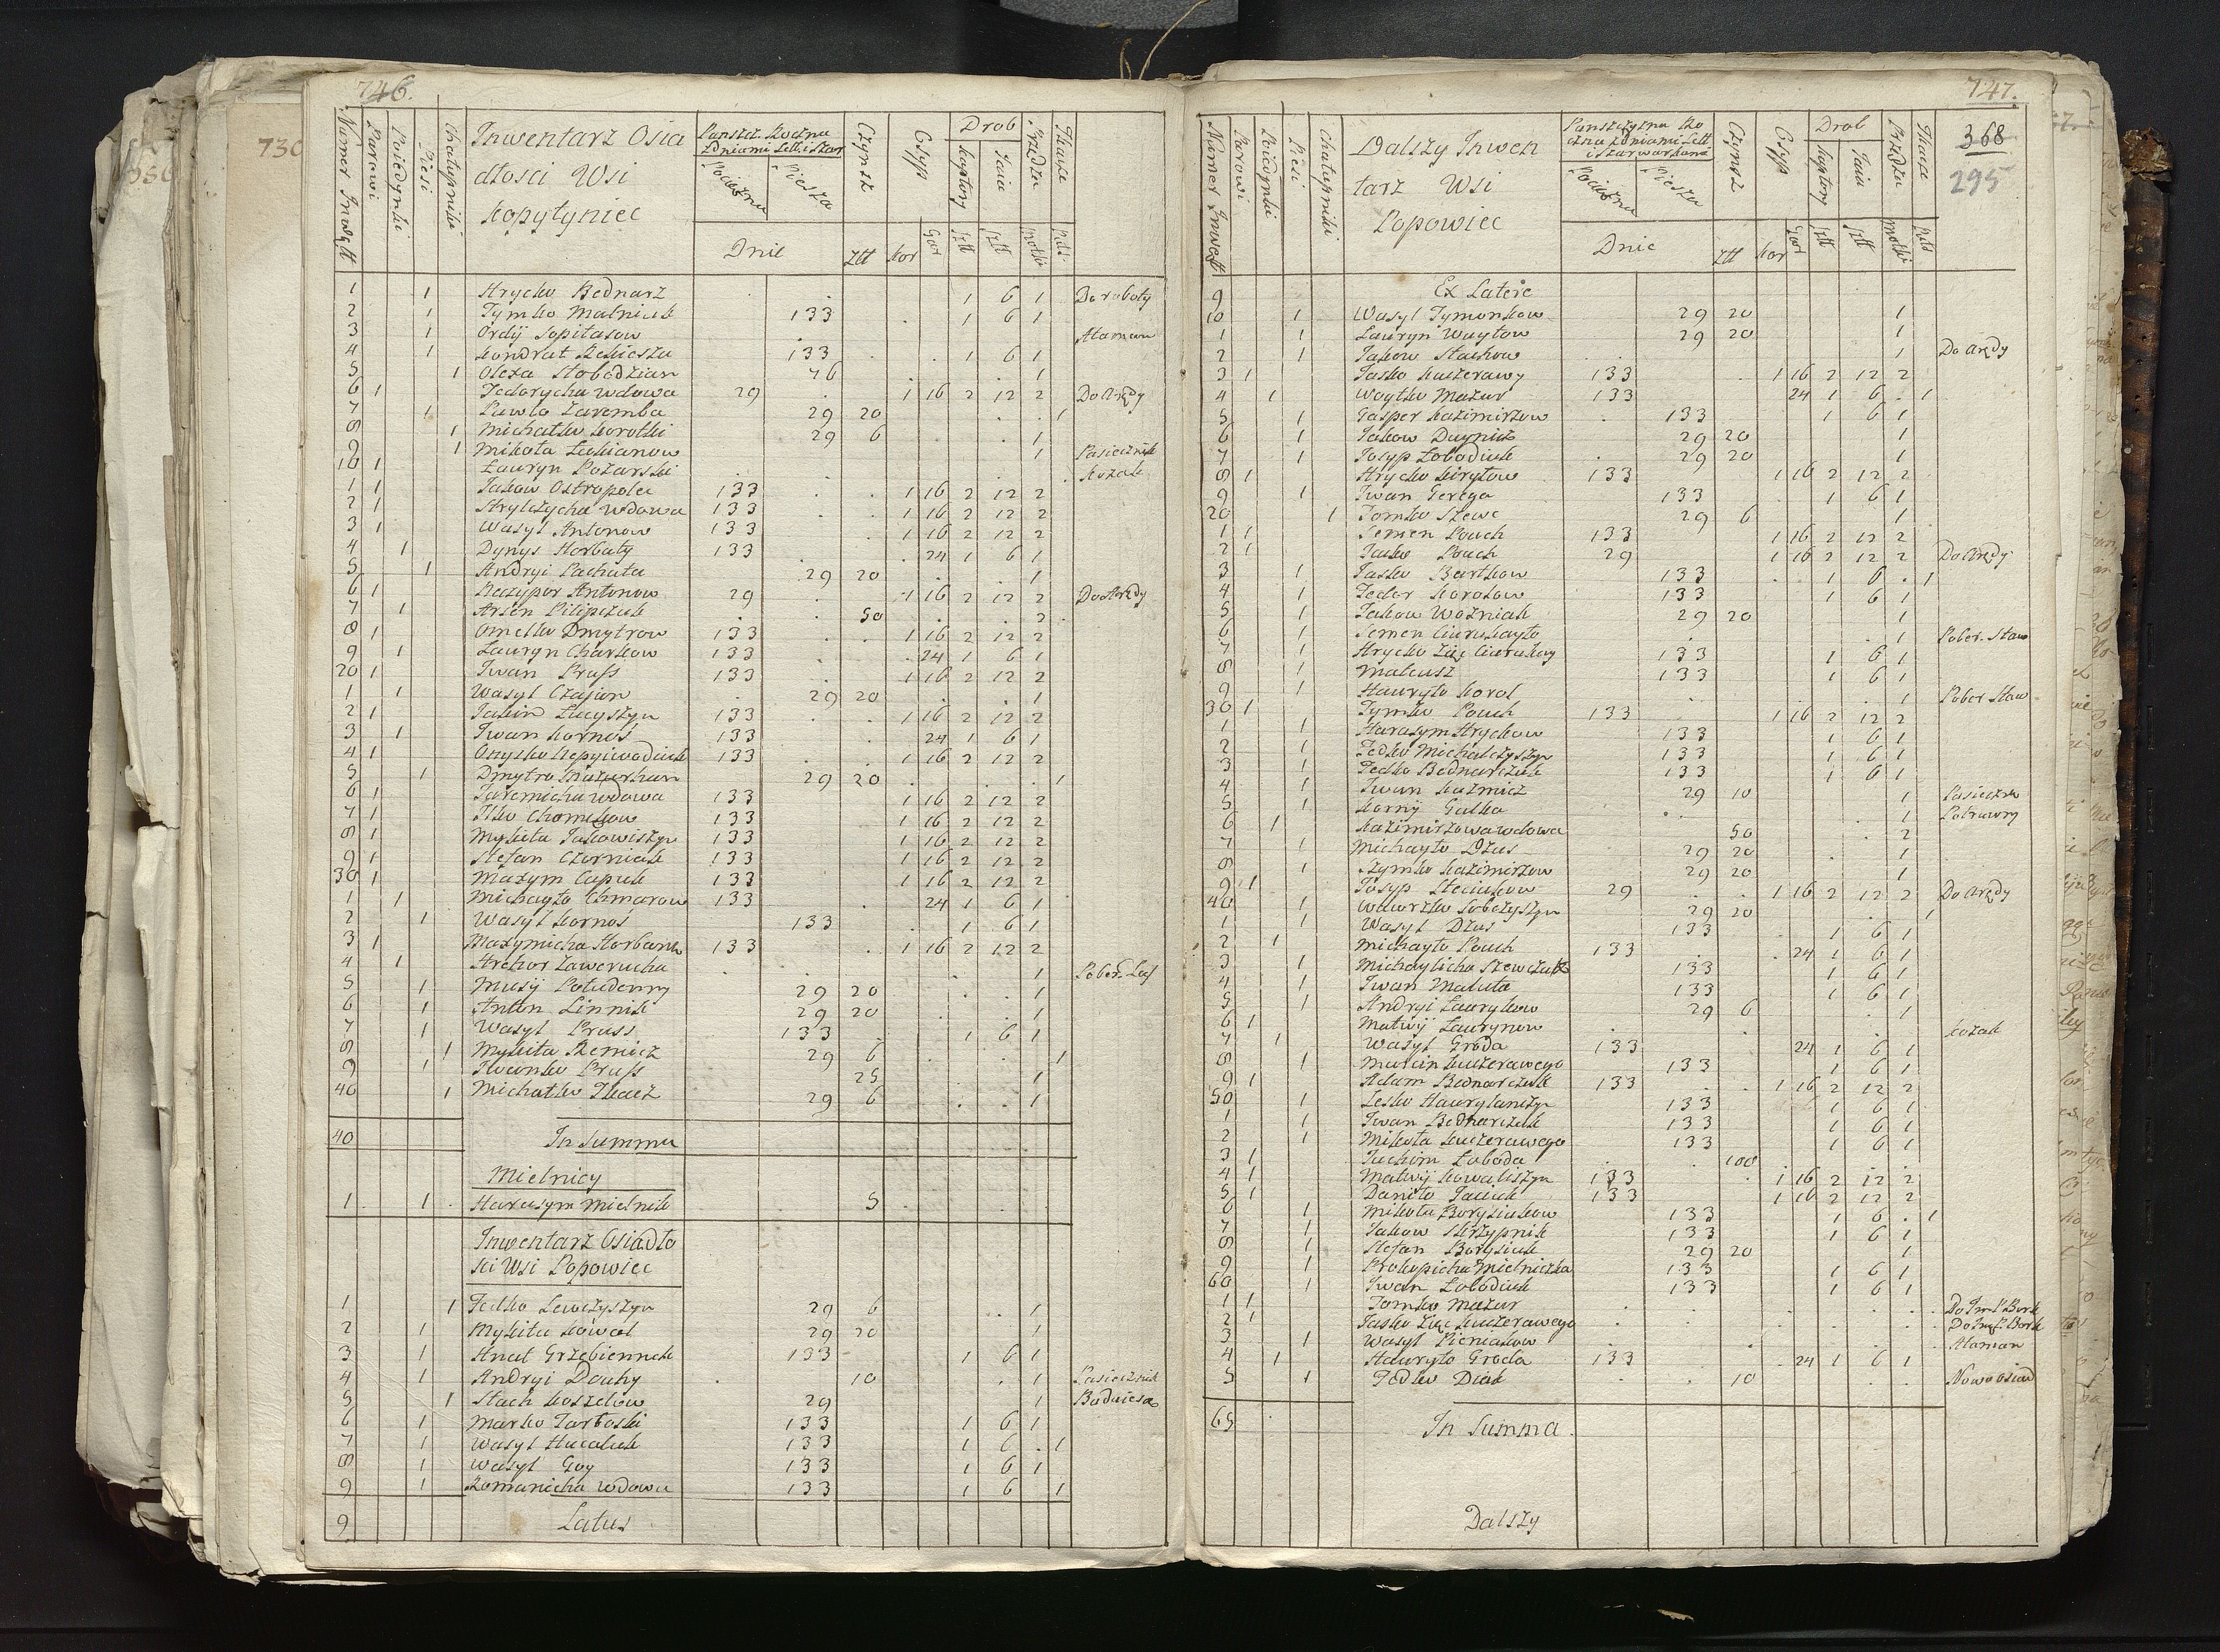 746.
Numer Inwent
Parowi
Poiedynki
Piesi
Chałupniki
Inwentarz Osia
dłosci Wsi
Kopytyniec
Pansz. Roczna
Zdniami Lett. i Szar
Pociężna
Piesza
Dnie
Czynsz
złł
Osyp
kor
Gar
Drob
kapłony
Jaia
szt
szt
Przędza
motki
Tkacze
1 1 Hrycko Bednarz 1 6 1 Do roboty
2 1 Tymko Malniuk 133 1 6 1
3 1 Ordij Sopitasow Ataman
4 1 Kondrat 133 1 6 1
5 1 Olexa Słobodzian 76 1
6 1 Fedorycha wdowa 29 1 16 2 12 2 Do Aredy
7 1 Pawło Zaremba 29 20 1
8 1 Michałko Korotki 29 6 1
9 1 Mikoła Łukianow 1 Pasiecznik
10 1 Ławryn Pożarski Kozak
1 1 Jakow Ostropolec 133 1 16 2 12 2
2 1 Hryhczycha wdowa 133 1 16 2 12 2
3 1 Wasyl Antonow 133 1 16 2 12 2
4 1 Dynys Horbaty 133 24 1 6 1
5 1 Andryi Pachuta 29 20 1
6 1 Antonow 29 1 16 2 12 2 Do Aredy
7 1 Arsen Pilipczuk 50 2
8 1 Omelko Dmytrow 133 1 16 2 12 2
9 1 Ławryn Charkow 133 24 1 6 1
20 1 Iwan Pruss 133 1 16 2 12 2
1 1 Wasyl Czajun 29 20 1
2 1 Jakim Łucyszyn 133 1 16 2 12 2
3 1 Iwan Kornoś 133 24 1 6 1
4 1 Onysko Nepyiwodiuk 133 1 16 2 12 2
5 1 Dmytro 29 20 1
6 1 Jaremicha wdowa 133 1 16 2 12 2
7 1 Ilko Chomikow 133 1 16 2 12 2
8 1 Mykita Jakowiszyn 133 1 16 2 12 2
9 1 Stefan Czorniuk 133 1 16 2 12 2
30 1 Maxym Capuk 133 1 16 2 12 2
1 1 Michayło Chmarow 133 24 1 6 1
2 1 Wasyl Kornoś 133 1 6 1
3 1 Maxymicha 133 1 16 2 12 2
4 1 Hrehor Zawerucha 1 Pober. Las
5 1 Musij Połudenny 29 20 1
6 1 Anton Linnik 29 20 1
7 1 Wasyl Pruss 133 1 6 1
8 1 Mykita 29 6 1
9 1 Iwanko Pruss 25 1
40 1 Michałko Tkacz 29 6 1
40 In Summa
Mielnicy
1 1 Harasym Mielnik 5
Inwentarz Osiadło
sci Wsi Popowiec
1 1 Fedko Lewczyszyn 29 6 1
2 1 Mykita Kowal 29 20 1
3 1 Hnat Grzebienniuk 133 1 6 1
4 1 Andryi Douhy 10 1 Pasiecznik
5 1 Stach Koszelow 29 1
6 1 Marko Tarboski 133 1 6 1
7 1 Wasyl Hucaluk 133 1 6 1
8 1 Wasyl Goy 133 1 6 1
9 1 Romanicha wdowa 133 1 6 1
9 Latus
747.
368
295
Numer Inwent
Parowi
Poiedynki
Piesi
Chałupniki
Dalszy Inwen
tarz Wsi
Popowiec
Panszczyzna Ro
czna Zdniami Lett
i Szarwarkami
Pociężna
Piesza
Dnie
Czynsz
złł
Osyp
kor
Gar
Drob
kapłony
Jaia
szt
szt
Przędza
motki
Tkacze
9 Ex Latere
10 1 Wasyl Tymonkow 29 20 1
1 1 Ławryn Waytow 29 20 1
2 1 Jakow Stachow 1 Do Aredy
3 1 Jasko Kuczerawy 133 1 16 2 12 2
4 1 Woytko Mazur 133 24 1 6 1
5 1 Gasper Kazimirzow 133 1 6 1
6 1 Jakow 29 20 1
7 1 Josyp Łobodiuk 29 20 1
8 1 Hrycko Kiryłow 133 1 16 2 12 2
9 1 Iwan Gerega 133 1 6 1
20 1 Tomko Szewc 29 6 1
1 1 Semen Pouch 133 1 16 2 12 2
2 1 Jasko Pouch 29 1 16 2 12 2 Do Aredy
3 1 Jasko Bartkow 133 1 6 1
4 1 Fedor 133 1 6 1
5 1 Jakow Wozniak 29 20 1
6 1 Semen 1 Pober. Staw
7 1 Hrycko Zięć 133 1 6 1
8 1 Mateusz 133 1 6 1
9 1 Hawryło Korol 1 Pober Staw
30 1 Tymko Pouch 133 1 16 2 12 2
1 1 Harasym Hryckow 133 1 6 1
2 1 Fedko Michalczyszyn 133 1 6 1
3 1 Fedko Bednarczuk 133 1 6 1
4 1 Iwan Kuzmicz 29 10 1 Pasiecznik
5 1 Kornij Gulka 1 Połrawny
6 1 Kazimirzowa wdowa 50 2
7 1 Michayło Dzus 29 20 1
8 1 Szymko Kazimirzow 29 20 1
9 1 Josyp Steciukow 29 1 16 2 12 2 Do Aredy
40 1 Wawrzko Sobczyszyn 29 20 1
1 1 Wasyl Dzus 133 1 6 1
2 1 Michayło Pouch 133 24 1 6 1
3 1 Michaylicha Szewczuk 133 1 6 1
4 1 Iwan Maluta 133 1 6 1
5 1 Andryi Ławrykow 29 6 1
6 1 Matwij Ławrynow Kozak
7 1 Wasyl Groda 133 24 1 6 1
8 1 Marcin Kuczerawego 133 1 6 1
9 1 Adam Bednarczuk 133 1 16 2 12 2
50 1 Lesko Hawrylaniszyn 133 1 6 1
1 1 Iwan Bednarczuk 133 1 6 1
2 1 Mikoła Kuczerawego 133 1 6 1
3 1 Juchim Łoboda 100
4 1 Matwij Kowaliszyn 133 1 16 2 12 2
5 1 Daniło Jaciuk 133 1 16 2 12 2
6 1 Mikoła Borysiukow 133 1 6 1
7 1 Jakow Skrzypnik 133 1 6 1
8 1 Stefan Borysiuk 29 20 1
9 1 Prokopicha Mielniczka 133 1 6 1
60 1 Iwan Łobodiuk 133 1 6 1
1 1 Tomko Mazur
2 1 Jasko Zięć Kuczerawego
3 1 Wasyl Pieniakow Ataman
4 1 Hawryło Groda 133 24 1 6 1
5 1 Fedko Diak 10 Nowo osiad
65 In Summa
Dalszy